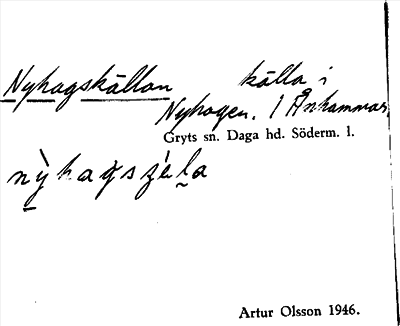 Nyhagskällan källa i
Nyhagen. / Ånhammar,
Gryts sn. Daga hd. Söderm. l.
Artur Olsson 1946.